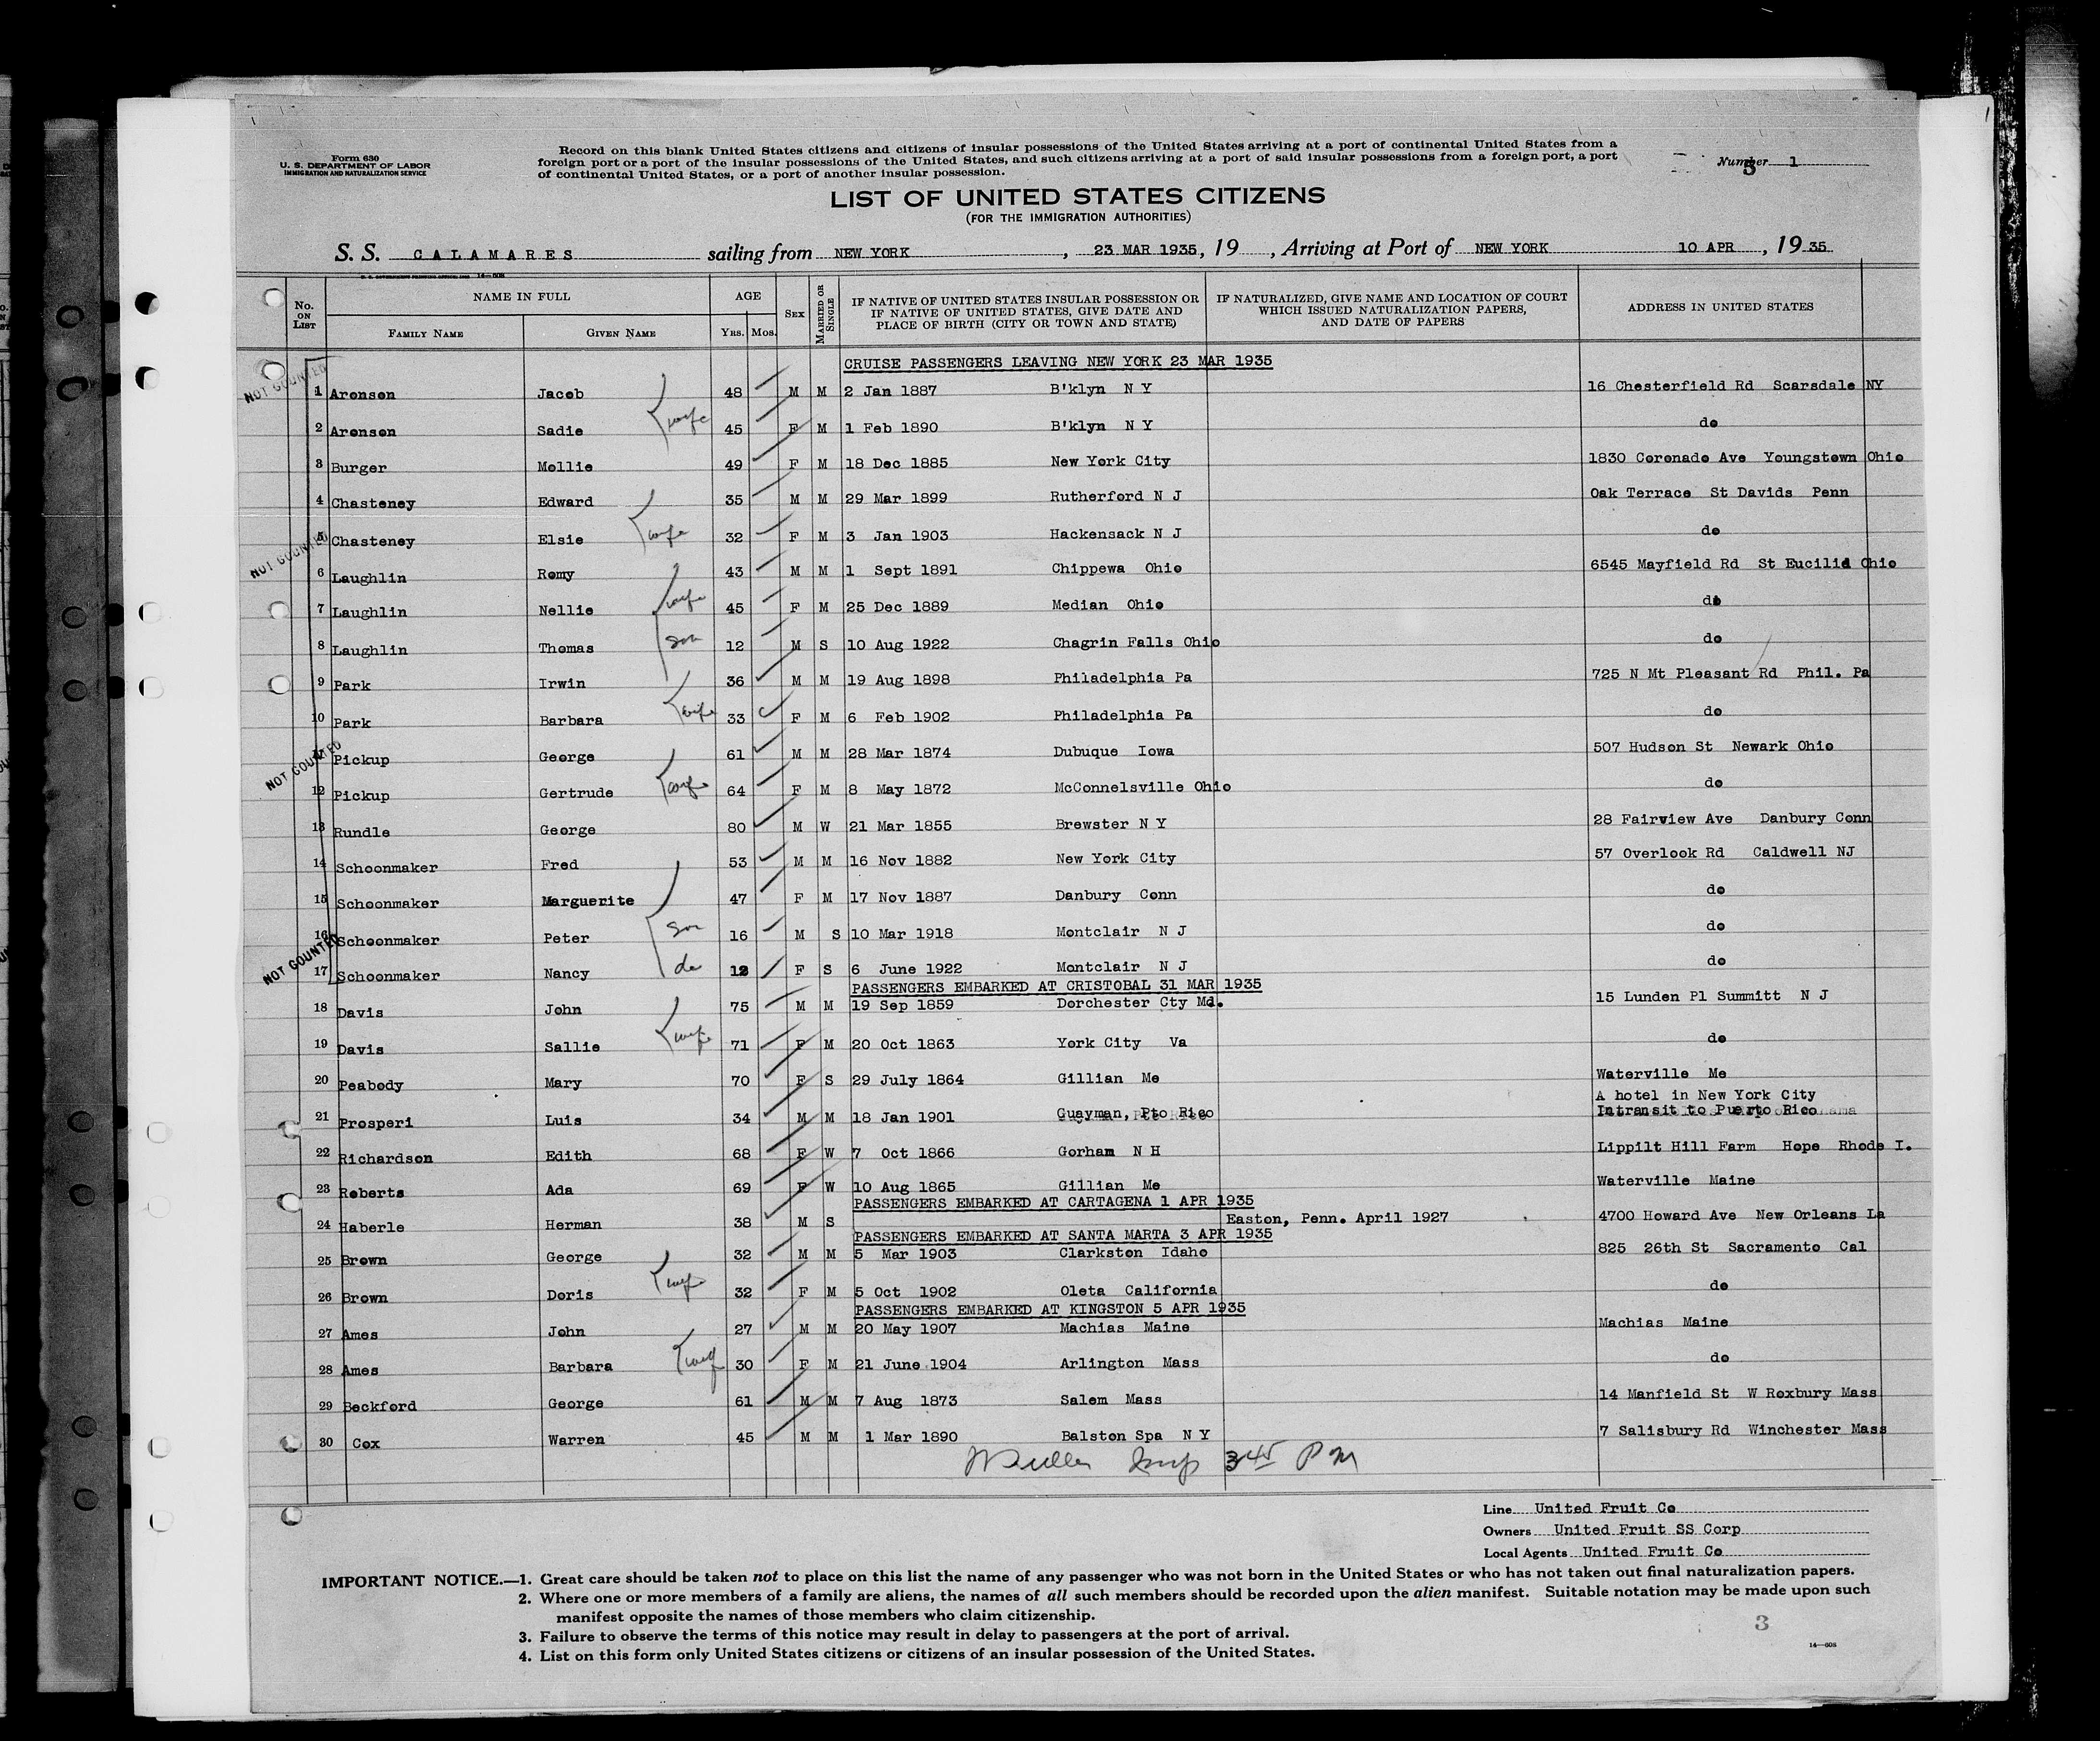 Form 630
U. S. DEPARTMENT OF LABOR
IMMIGRATION AND NATURALIZATION SERVICE
Record on this blank United States citizens and citizens of insular possessions of the United States arriving at a port of continental United States from a
foreign port or a port of the insular possessions of the United States, and such citizens arriving at a port of said insular possessions from a foreign port, a port
of continental United States, or a port of another insular possession.
Number 1
3
LIST OF UNITED STATES CITIZENS
(FOR THE IMMIGRATION AUTHORITIES)
S. S. CALAMARES sailing from NEW YORK , 23 MAR 1935, 19 , Arriving at Port of NEW YORK 10 APR , 19 35
No. ON LIST NAME IN FULL FAMILY NAME GIVEN NAME AGE YRS. MOS. SEX MARRIED OR SINGLE IF NATIVE OF UNITED STATES INSULAR POSSESSION OR IF NATIVE OF UNITED STATES, GIVE DATE AND PLACE OF BIRTH (CITY OR TOWN AND STATE) IF NATURALIZED, GIVE NAME AND LOCATION OF COURT WHICH ISSUED NATURALIZATION PAPERS, AND DATE OF PAPERS ADDRESS IN UNITED STATES
CRUISE PASSENGERS LEAVING NEW YORK 23 MAR 1935
NOT COUNTED
1 Aronson Jacob 48 M M 2 Jan 1887 B'klyn N Y 16 Chesterfield Rd Scarsdale NY
2 Aronson Sadie wife 45 F M 1 Feb 1890 B'klyn N Y do
3 Burger Mollie 49 F M 18 Dec 1885 New York City 1830 Coronado Ave Youngstown Ohio
4 Chasteney Edward 35 M M 29 Mar 1899 Rutherford N J Oak Terrace St Davids Penn
5 Chasteney Elsie wife 32 F M 3 Jan 1903 Hackensack N J do
NOT COUNTED
6 Laughlin Romy 43 M M 1 Sept 1891 Chippewa Ohio 6545 Mayfield Rd St Eucilid Ohio
7 Laughlin Nellie wife 45 F M 25 Dec 1889 Median Ohio do
8 Laughlin Thomas son 12 M S 10 Aug 1922 Chagrin Falls Ohio do
9 Park Irwin 36 M M 19 Aug 1898 Philadelphia Pa 725 N Mt Pleasant Rd Phil. Pa
10 Park Barbara wife 33 F M 6 Feb 1902 Philadelphia Pa do
11 Pickup George 61 M M 28 Mar 1874 Dubuque Iowa 507 Hudson St Newark Ohio
NOT COUNTED
12 Pickup Gertrude wife 64 F M 8 May 1872 McConnelsville Ohio do
13 Rundle George 80 M W 21 Mar 1855 Brewster N Y 28 Fairview Ave Danbury Conn
14 Schoonmaker Fred 53 M M 16 Nov 1882 New York City 57 Overlook Rd Caldwell NJ
15 Schoonmaker Marguerite 47 F M 17 Nov 1887 Danbury Conn do
16 Schoonmaker Peter son 16 M S 10 Mar 1918 Montclair N J do
NOT COUNTED
17 Schoonmaker Nancy da 12 F S 6 June 1922 Montclair N J do
PASSENGERS EMBARKED AT CRISTOBAL 31 MAR 1935
18 Davis John 75 M M 19 Sep 1859 Dorchester Cty Md. 15 Lunden Pl Summitt N J
19 Davis Sallie wife 71 F M 20 Oct 1863 York City Va do
20 Peabody Mary 70 F S 29 July 1864 Gillian Me Waterville Me
A hotel in New York City
21 Prosperi Luis 34 M M 18 Jan 1901 Guayman, Pto Rico Intransit to Puerto Rico
22 Richardson Edith 68 F W 7 Oct 1866 Gorham N H Lippilt Hill Farm Hope Rhode I.
23 Roberts Ada 69 F W 10 Aug 1865 Gillian Me Waterville Maine
PASSENGERS EMBARKED AT CARTAGENA 1 APR 1935
24 Haberle Herman 38 M S Easton, Penn. April 1927 4700 Howard Ave New Orleans La
PASSENGERS EMBARKED AT SANTA MARTA 3 APR 1935
25 Brown George 32 M M 5 Mar 1903 Clarkston Idaho 825 26th St Sacramento Cal
26 Brown Doris wife 32 F M 5 Oct 1902 Oleta California do
PASSENGERS EMBARKED AT KINGSTON 5 APR 1935
27 Ames John 27 M M 20 May 1907 Machias Maine Machias Maine
28 Ames Barbara wif 30 F M 21 June 1904 Arlington Mass do
29 Beckford George 61 M M 7 Aug 1873 Salem Mass 14 Manfield St W Roxbury Mass
30 Cox Warren 45 M M 1 Mar 1890 Balston Spa N Y 7 Salisbury Rd Winchester Mass
Insp 3 45 P M
Line United Fruit Co
Owners United Fruit SS Corp
Local Agents United Fruit Co
IMPORTANT NOTICE.—1. Great care should be taken not to place on this list the name of any passenger who was not born in the United States or who has not taken out final naturalization papers.
2. Where one or more members of a family are aliens, the names of all such members should be recorded upon the alien manifest. Suitable notation may be made upon such
manifest opposite the names of those members who claim citizenship.
3. Failure to observe the terms of this notice may result in delay to passengers at the port of arrival.
4. List on this form only United States citizens or citizens of an insular possession of the United States.
3
14—608